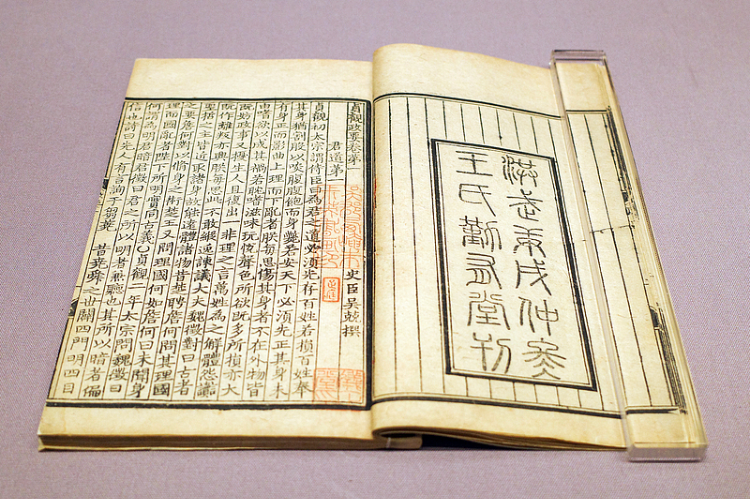 洪武庚戌仲冬
王氏勤有堂刊
貞觀政要卷第一
史臣吳兢撰
君道第一
貞觀初太宗謂侍臣曰為君之道必須先存百姓若損百姓奉
其身猶割股以啖腹腹飽而身斃君安天下必須先正其身未
有身正而影曲上理而下亂者朕每思傷其身者不在外物皆
由嗜欲以成其禍若耽嗜滋味玩悅聲色所欲既多所損亦大
既妨政事又擾生人且復出一非理之言萬姓為之解體怨讟
既作離叛亦興朕每思此不敢縱逸諫議大夫魏徵對曰古者
聖哲之主皆近取諸身故能遠體諸物昔楚聘詹何問其理國
之要詹何對以脩身之術楚王又問理國何如詹何曰未聞身
理而國亂者陛下所明實同古義○貞觀二年太宗問魏徵曰
何謂為明君暗君徵曰君之所以明者兼聽也其所以暗者偏
信也詩曰先人有言詢于芻蕘 昔堯舜之世闢四門明四目